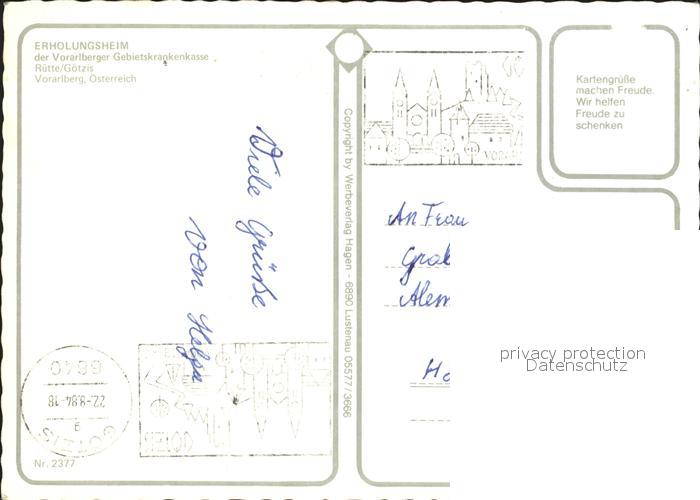 ERHOLUNGSHEIM
der Vorarlberger Gebietskrankenkasse
Rütte/Götzis
Vorarlberg, Österreich
Viele Grüße
von Helga
6840
22.-8.84-18
g
GÖTZIS
GÖTZIS
Nr. 2377
Copyright by Werbeverlag Hagen - 6890 Lustenau 05577/3666
Kartengrüße
machen Freude.
Wir helfen
Freude zu
schenken
An Frau
privacy protection
Datenschutz